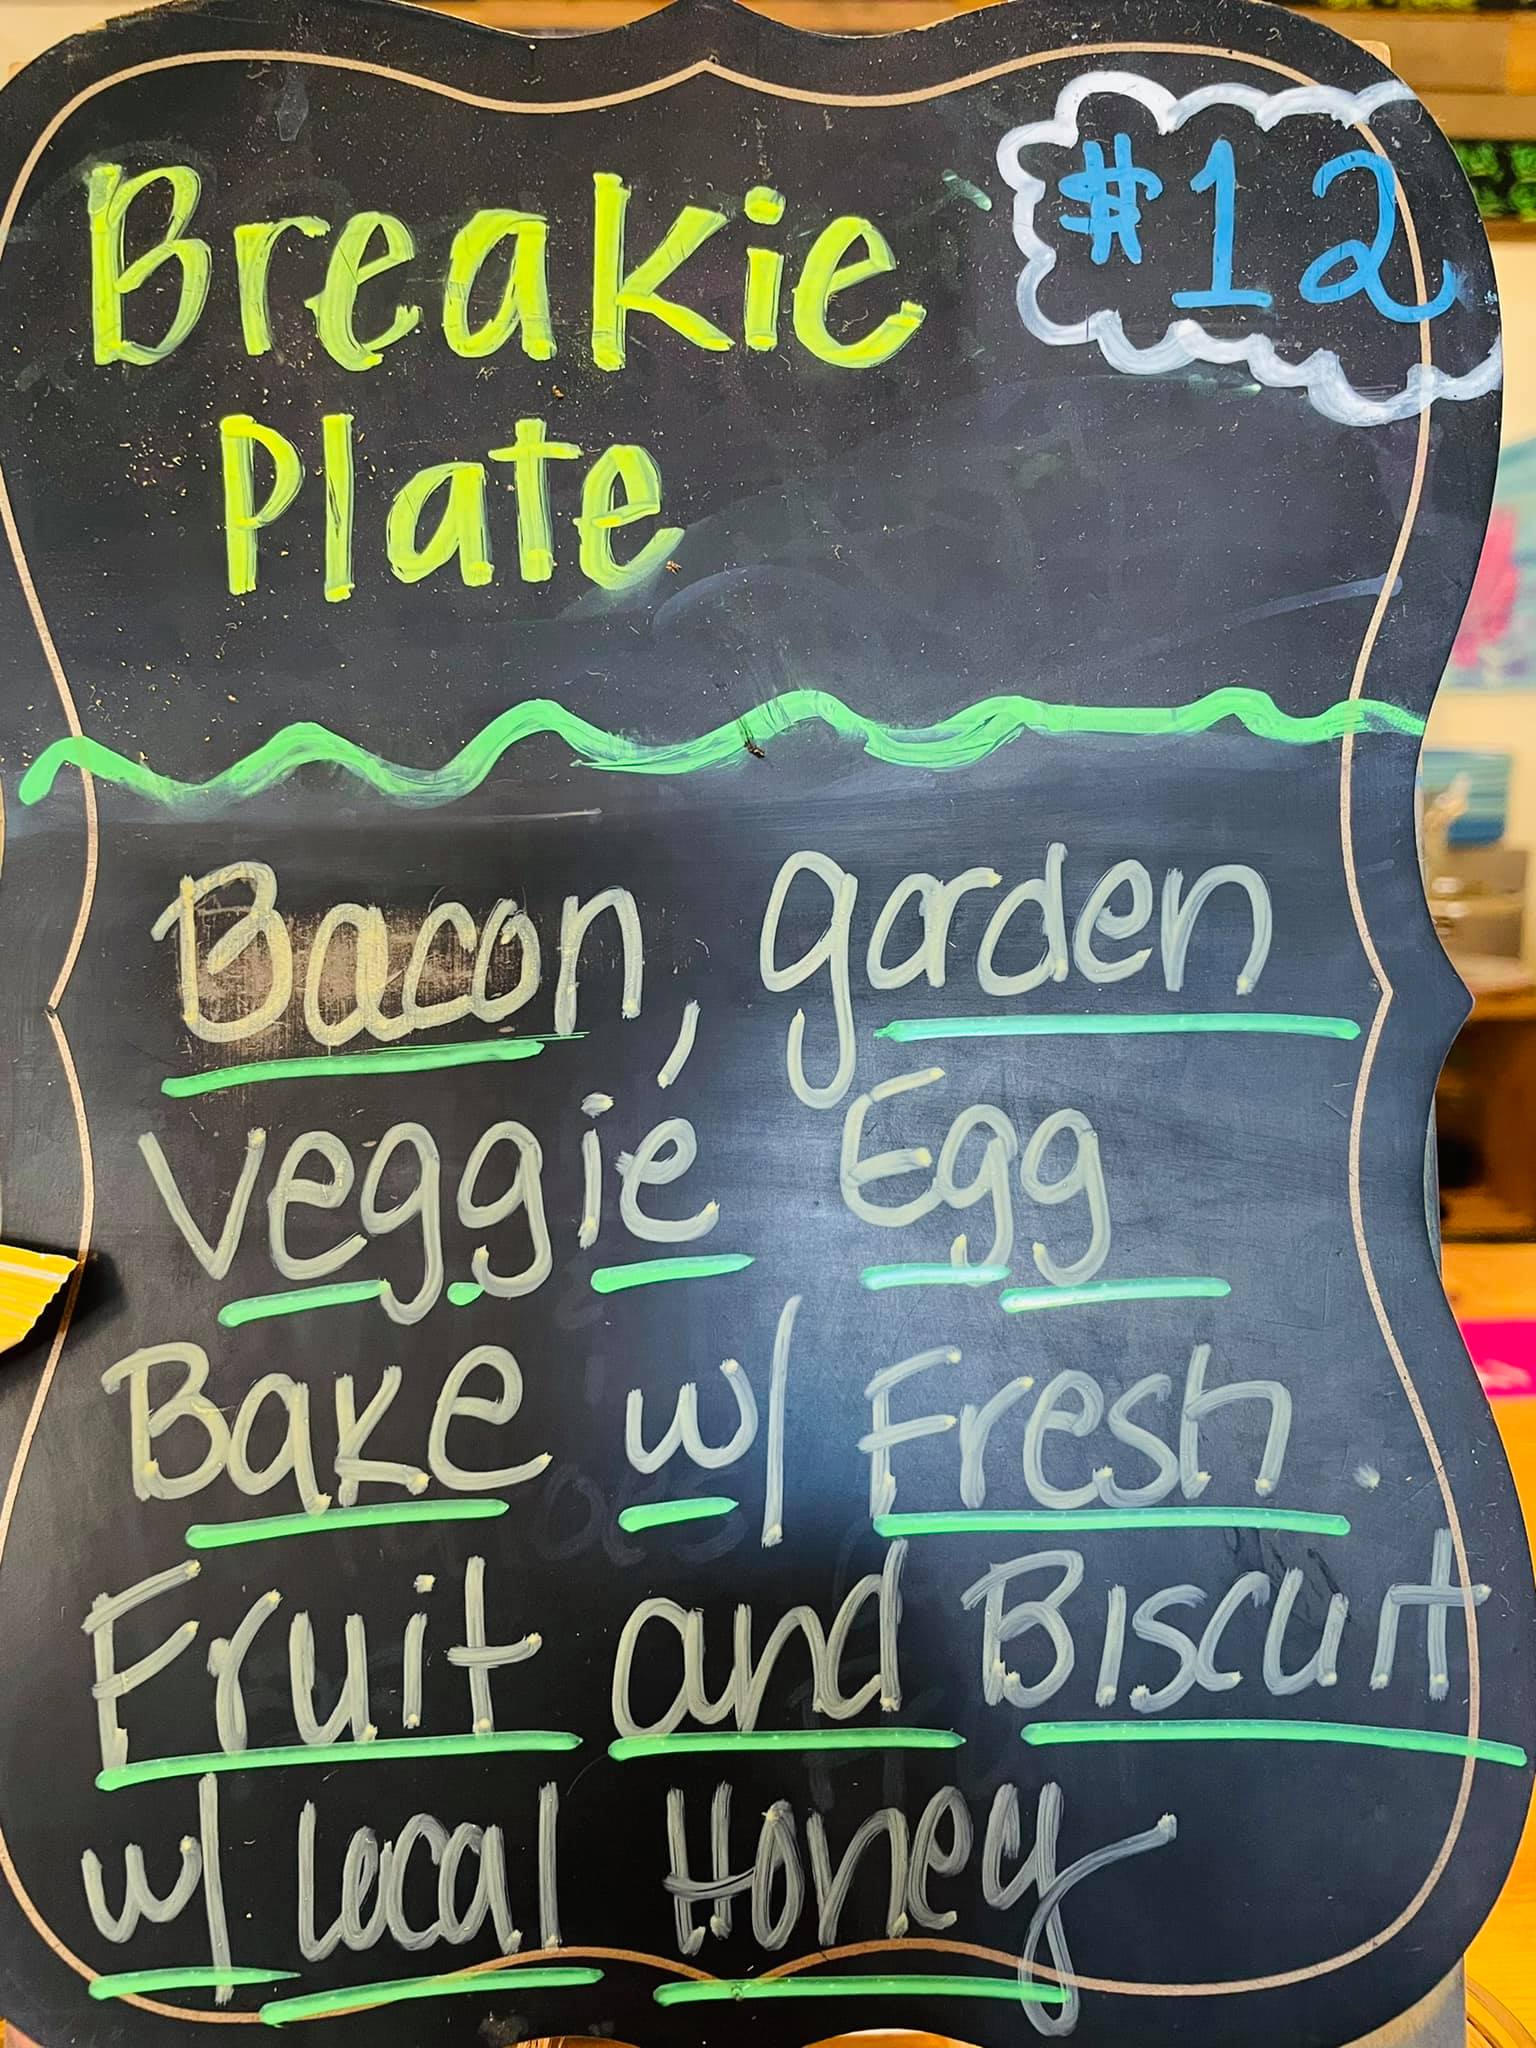 Breakie
#12
Plate
Bacon, garden
veggie, Egg
Bake w/ Fresh
Fruit and Biscuit
w/ local Honey